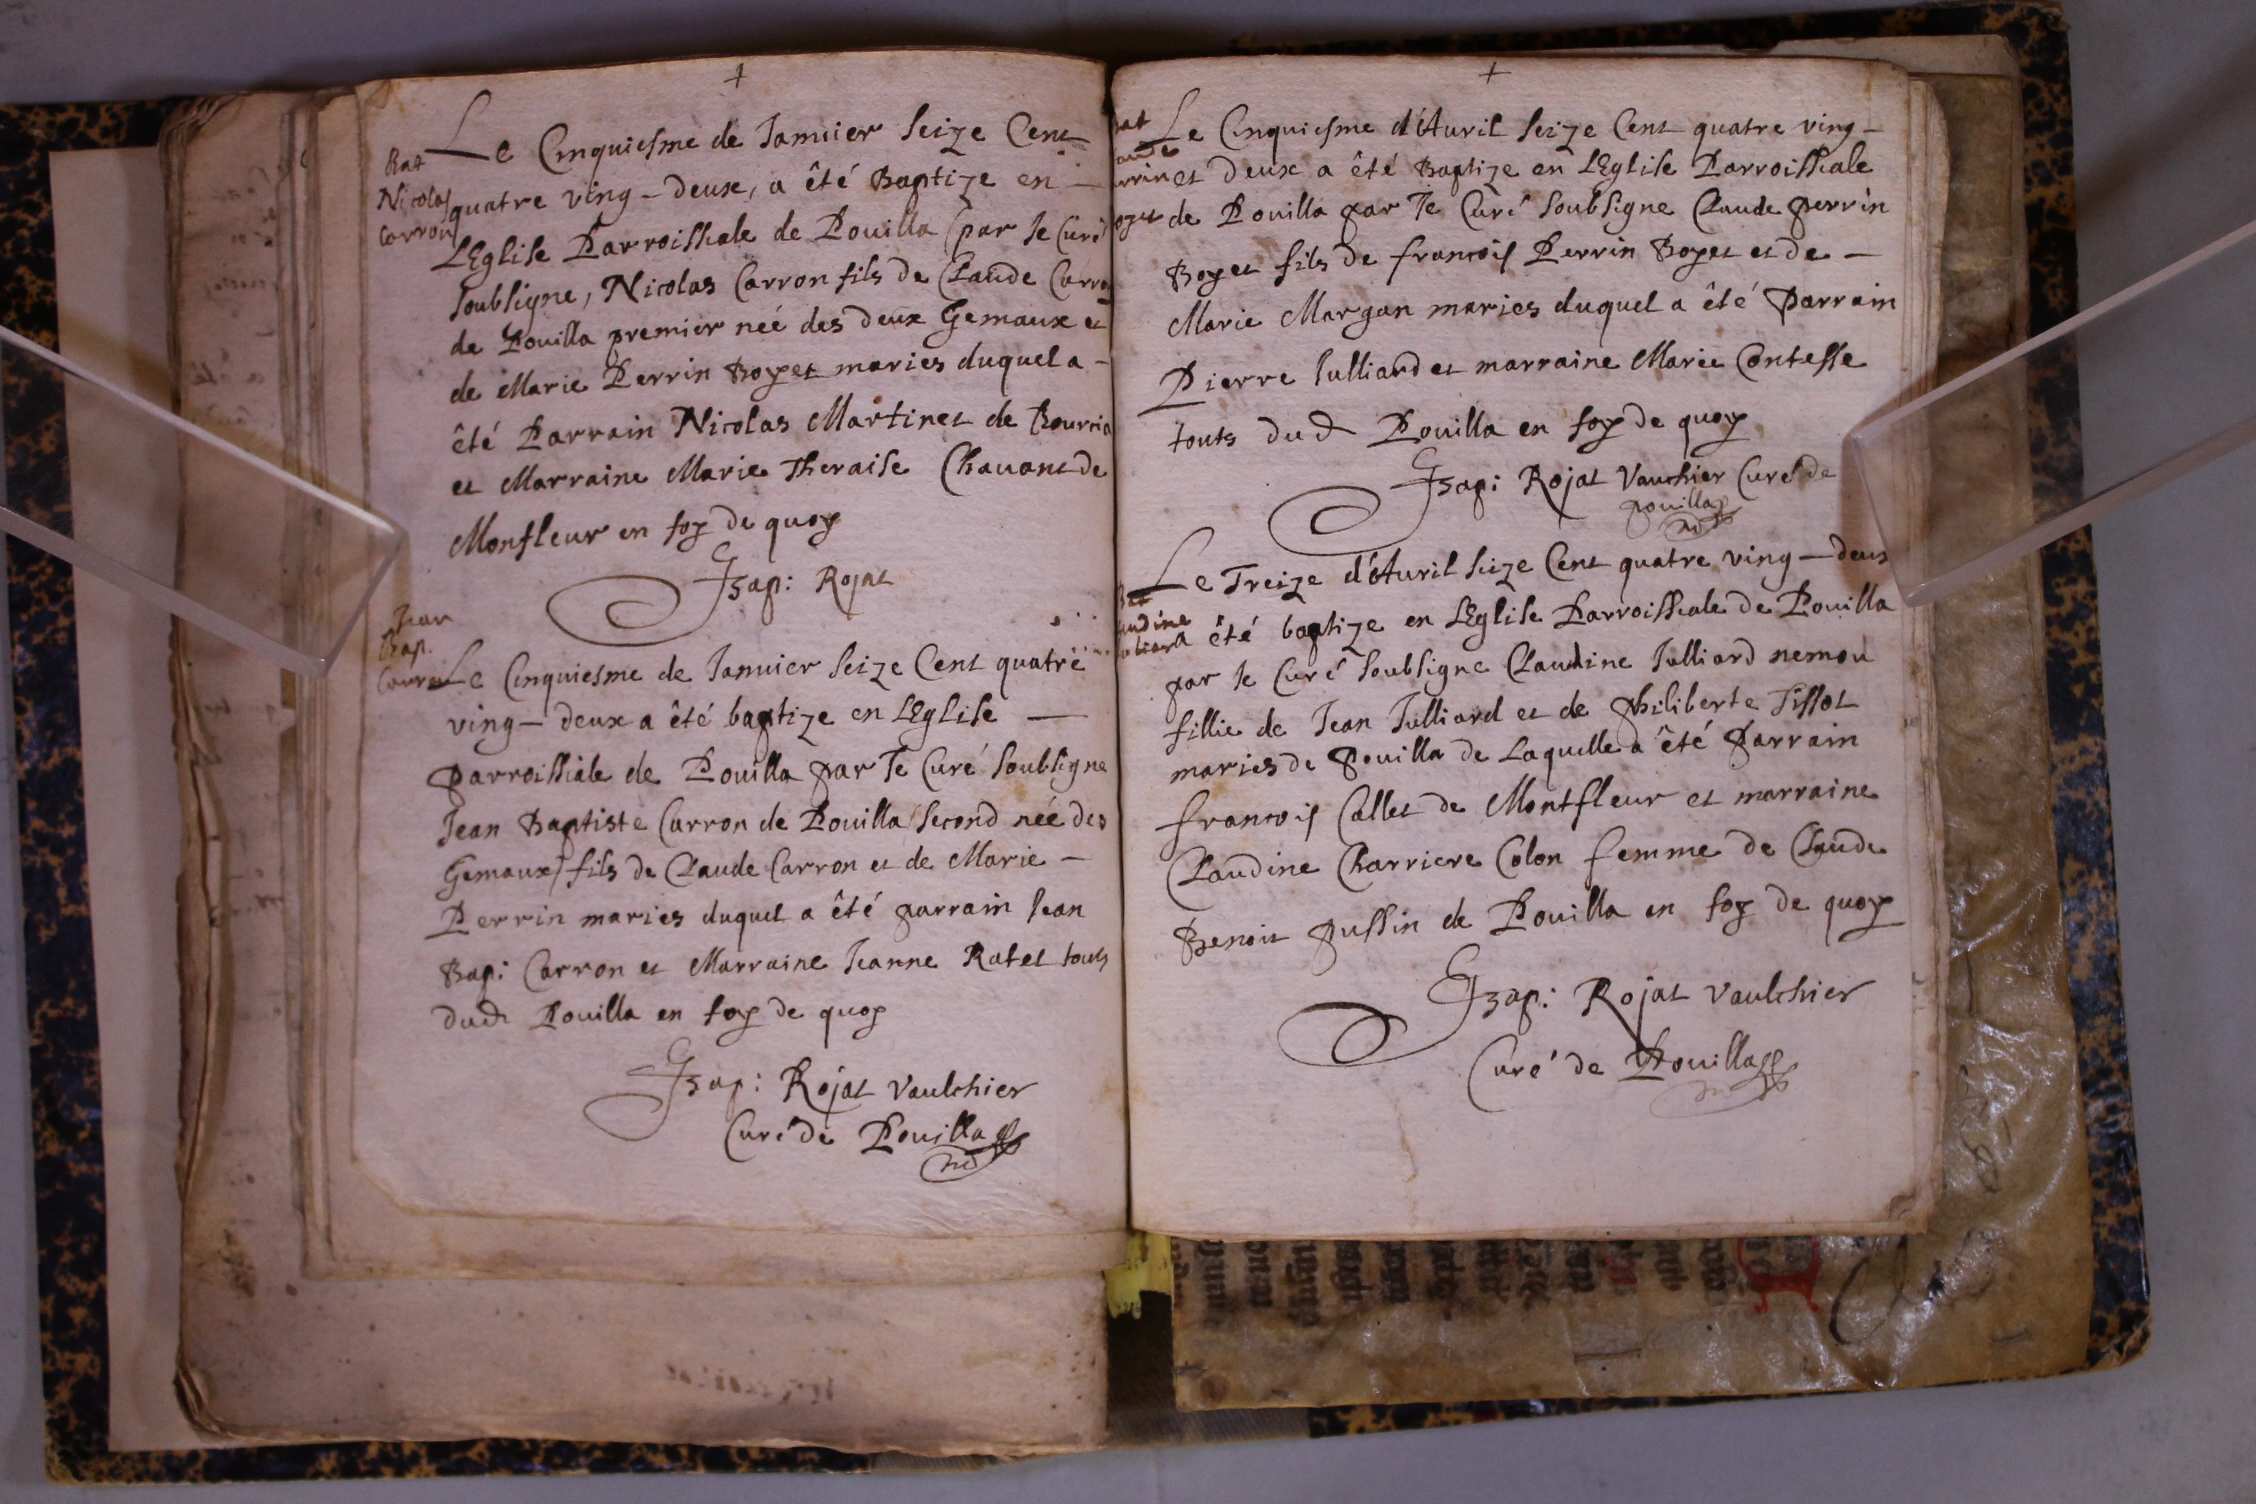 +
Bat
Nicolas
Carron
Le Cinquiesme de Januier seize Cent
quatre ving - deux, a êté Baptize en -
LEglise Parroissiale de Pouilla (par le Curé
soubsigne, Nicolas Carron fils de Claude Carron
de Pouilla premier neé des deux Gemaux et
de Marie Perrin Boyet maries duquel a -
êté Parrain Nicolas Martinet de Bourcia
et Marraine Marie Theraise Chauant de
Monfleur en foy de quoy
JBap: Rojat
Jean
Bap.
Carron
Le Cinquiesme de Januier seize Cent quatre
ving - deux a êté baptize en LEglise -
Parroissiale de Pouilla par le Curé soubsigne
Jean Baptiste Carron de Pouilla (second neé des
Gemaux) fils de Claude Carron et de Marie -
Perrin maries duquel a êté parrain Jean
Bap: Carron et Marraine Jeanne Ratet touts
dud Pouilla en foy de quoy
JBap: Rojat Vaulchier
Curé de Pouilla
+
Le Cinquiesme d'Auril seize Cent quatre ving -
et deux a êté Baptize en LEglise Parroissiale
de Pouilla par le Curé soubsigne Claude perrin
Boyet fils de francois Perrin Boyet et de -
Marie Margan maries duquel a êté Parrain
Pierre Julliard et marraine Marie Contesse
touts dud Pouilla en foy de quoy
JBap: Rojat Vauchier Curé de
pouilla
Le Treize d'Auril seize Cent quatre ving - deux
êté baptize en LEglise Parroissiale de Pouilla
par le Curé soubsigne Claudine Julliard nemou
fillie de Jean Julliard et de philiberte Tissot
maries de Pouilla de Laquelle a êté Parrain
francois Callet de Montfleur et marraine
Claudine Charriere Colon femme de Claude
Benoit pussin de Pouilla en foy de quoy
JBap: Rojat Vaulchier
Curé de Pouilla